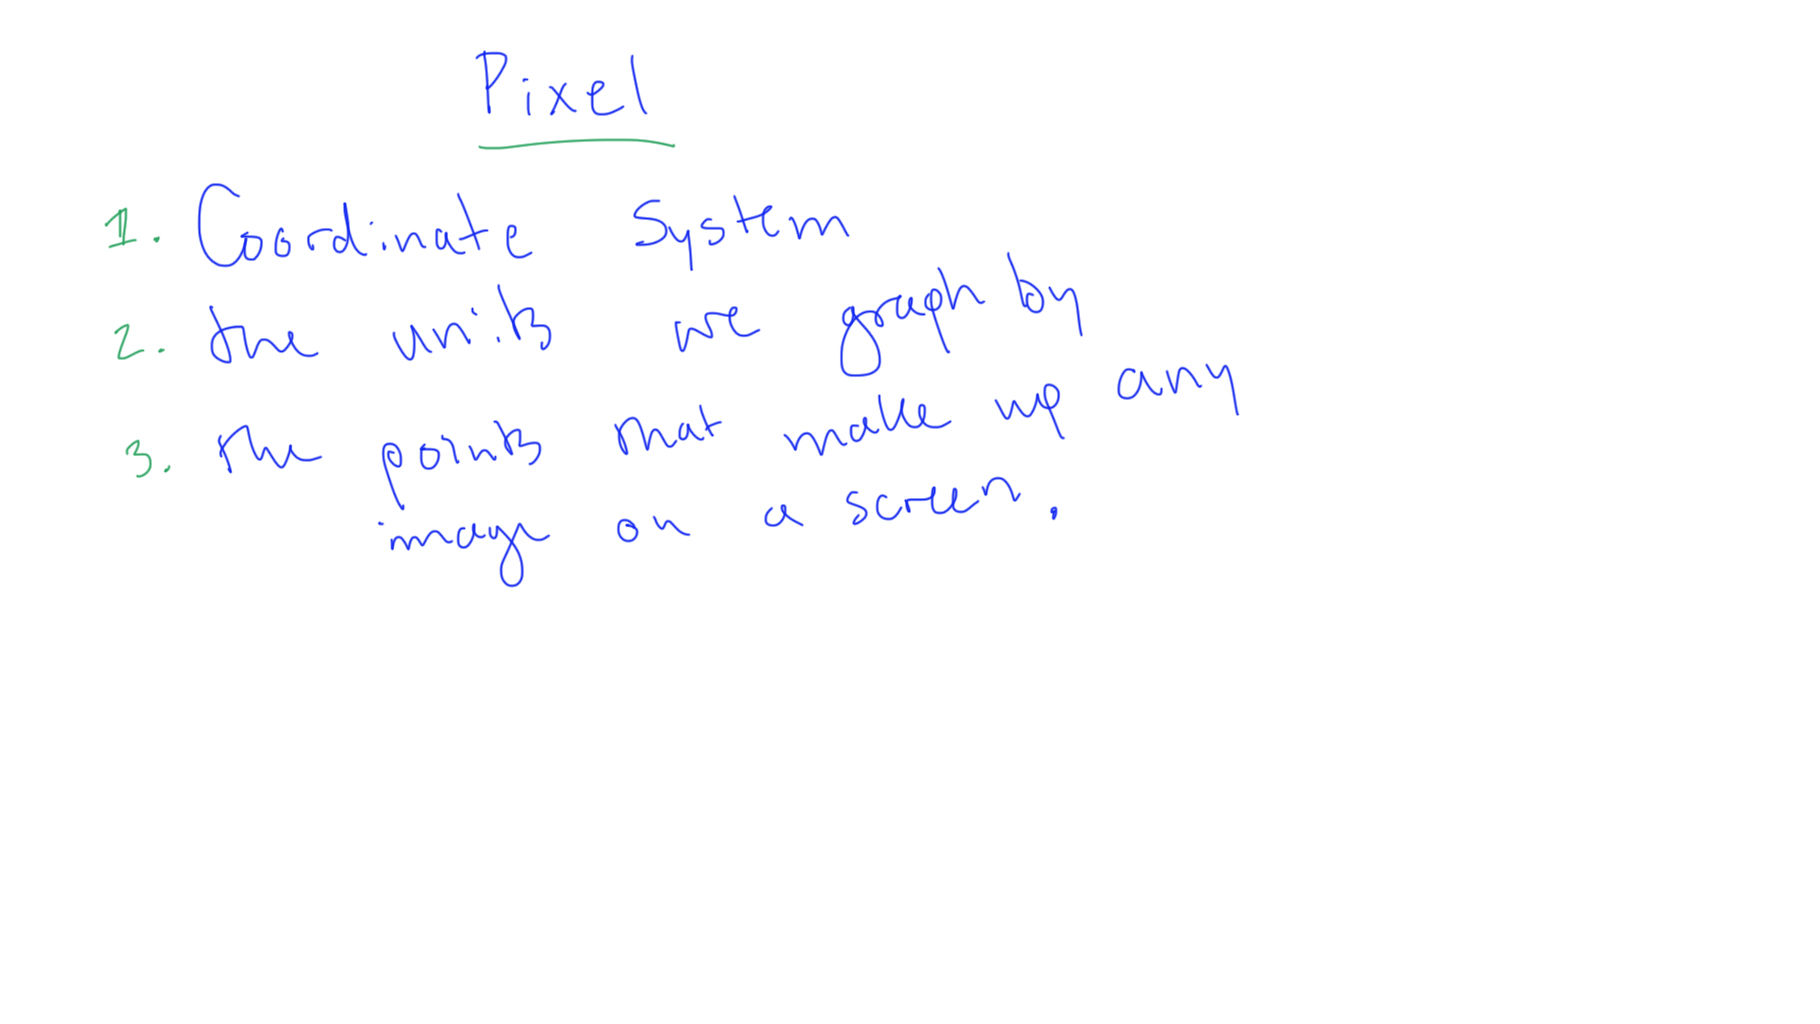 Pixel
1. Coordinate System
2. the units we graph by
3. the points that make up any
image on a screen.